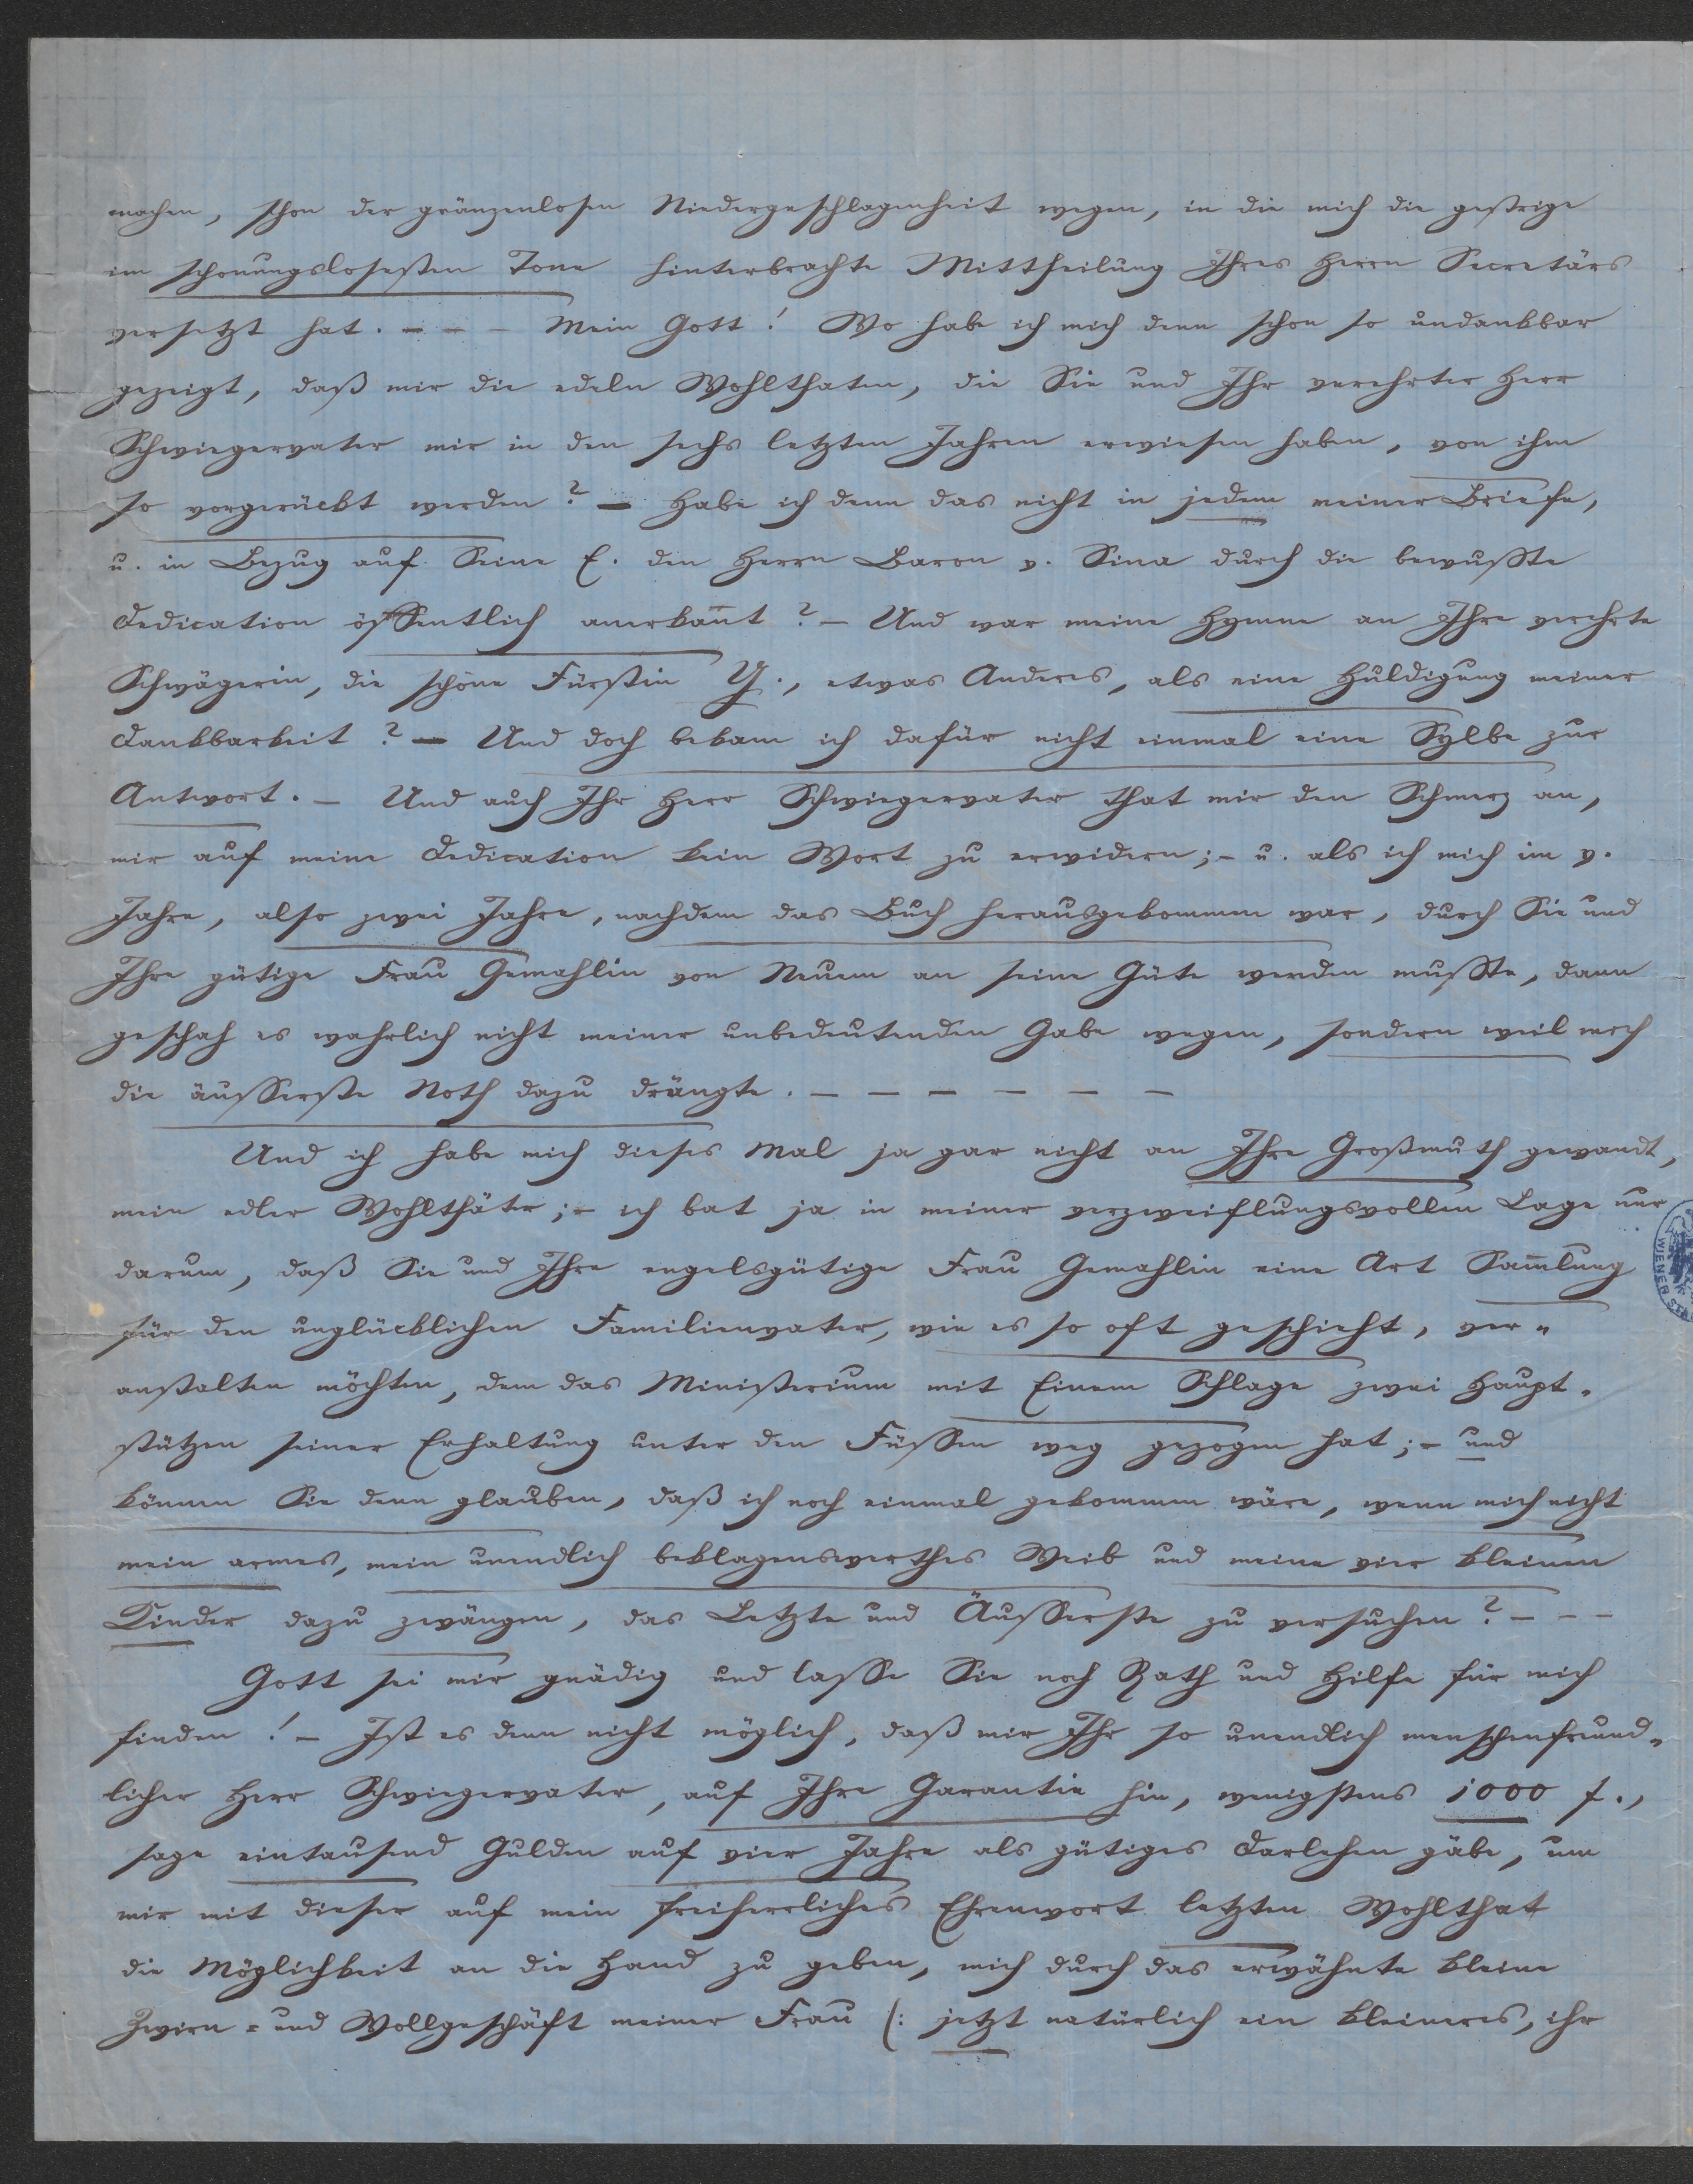 machen, schon der gränzenlosen Niedergeschlagenheit wegen, in die mich die gestrige
im schonungslosesten Tone hinterbrachte Mittheilung Ihres Herrn Secretärs
versetzt hat. - - - Mein Gott! Wo habe ich mich denn schon so undankbar
gezeigt, daß mir die edeln Wohlthaten, die Sie und Ihr verehrter Herr
Schwiegervater mir in den sechs letzten Jahren erwiesen haben, von ihm
so vorgerückt werden? — Habe ich denn das nicht in jedem meiner Briefe,
u. in Bezug auf Seine E. den Herrn Baron v. Sina durch die bewußte
Dedication öffentlich anerkan̄t? — Und war meine Hymne an Ihre verehrte
Schwägerin, die schöne Fürstin Y., etwas Anderes, als eine Huldigung meiner
Dankbarkeit? — Und doch bekam ich dafür nicht einmal eine Sylbe zur
Antwort. — Und auch Ihr Herr Schwiegervater that mir den Schmerz an,
mir auf meine Dedication kein Wort zu erwidern; - u. als ich mich im v.
Jahre, also zwei Jahre, nachdem das Buch herausgekommen war, durch Sie und
Ihre gütige Frau Gemahlin von Neuem an seine Güte wenden mußte, dann
geschah es wahrlich nicht meiner unbedeutenden Gabe wegen, sondern weil mich
die äusserste Noth dazu drängte. — — — — — —
Und ich habe mich dieses Mal ja gar nicht an Ihre Großmuth gewandt,
mein edler Wohlthäter; - ich bat ja in meiner verzweiflungsvollen Lage nur
darum, daß Sie und Ihre engelsgütige Frau Gemahlin eine Art Sam̄lung
für den unglücklichen Familienvater, wie es so oft geschieht, ver„
anstalten möchten, dem das Ministerium mit Einem Schlage zwei Haupt„
stützen seiner Erhaltung unter den Füssen weg gezogen hat; - und
können Sie denn glauben, daß ich noch einmal gekommen wäre, wenn mich nicht
mein armes, mein unendlich beklagenswerthes Weib und meine vier kleinen
Kinder dazu zwängen, das Letzte und Äusserste zu versuchen? - - -
Gott sei mir gnädig und lasse Sie noch Rath und Hilfe für mich
finden! — Ist es denn nicht möglich, daß mir Ihr so unendlich menschenfreund„
licher Herr Schwiegervater, auf Ihre Garantie hin, wenigstens 1000 f.,
sage eintausend Gulden auf vier Jahre als gütiges Darlehen gäbe, um
mir mit dieser auf mein freiherrliches Ehrenwort letzten Wohlthat
die Möglichkeit an die Hand zu geben, mich durch das erwähnte kleine
Zwirn= und Wollgeschäft meiner Frau (: jetzt natürlich ein kleineres, ihr
WIENER